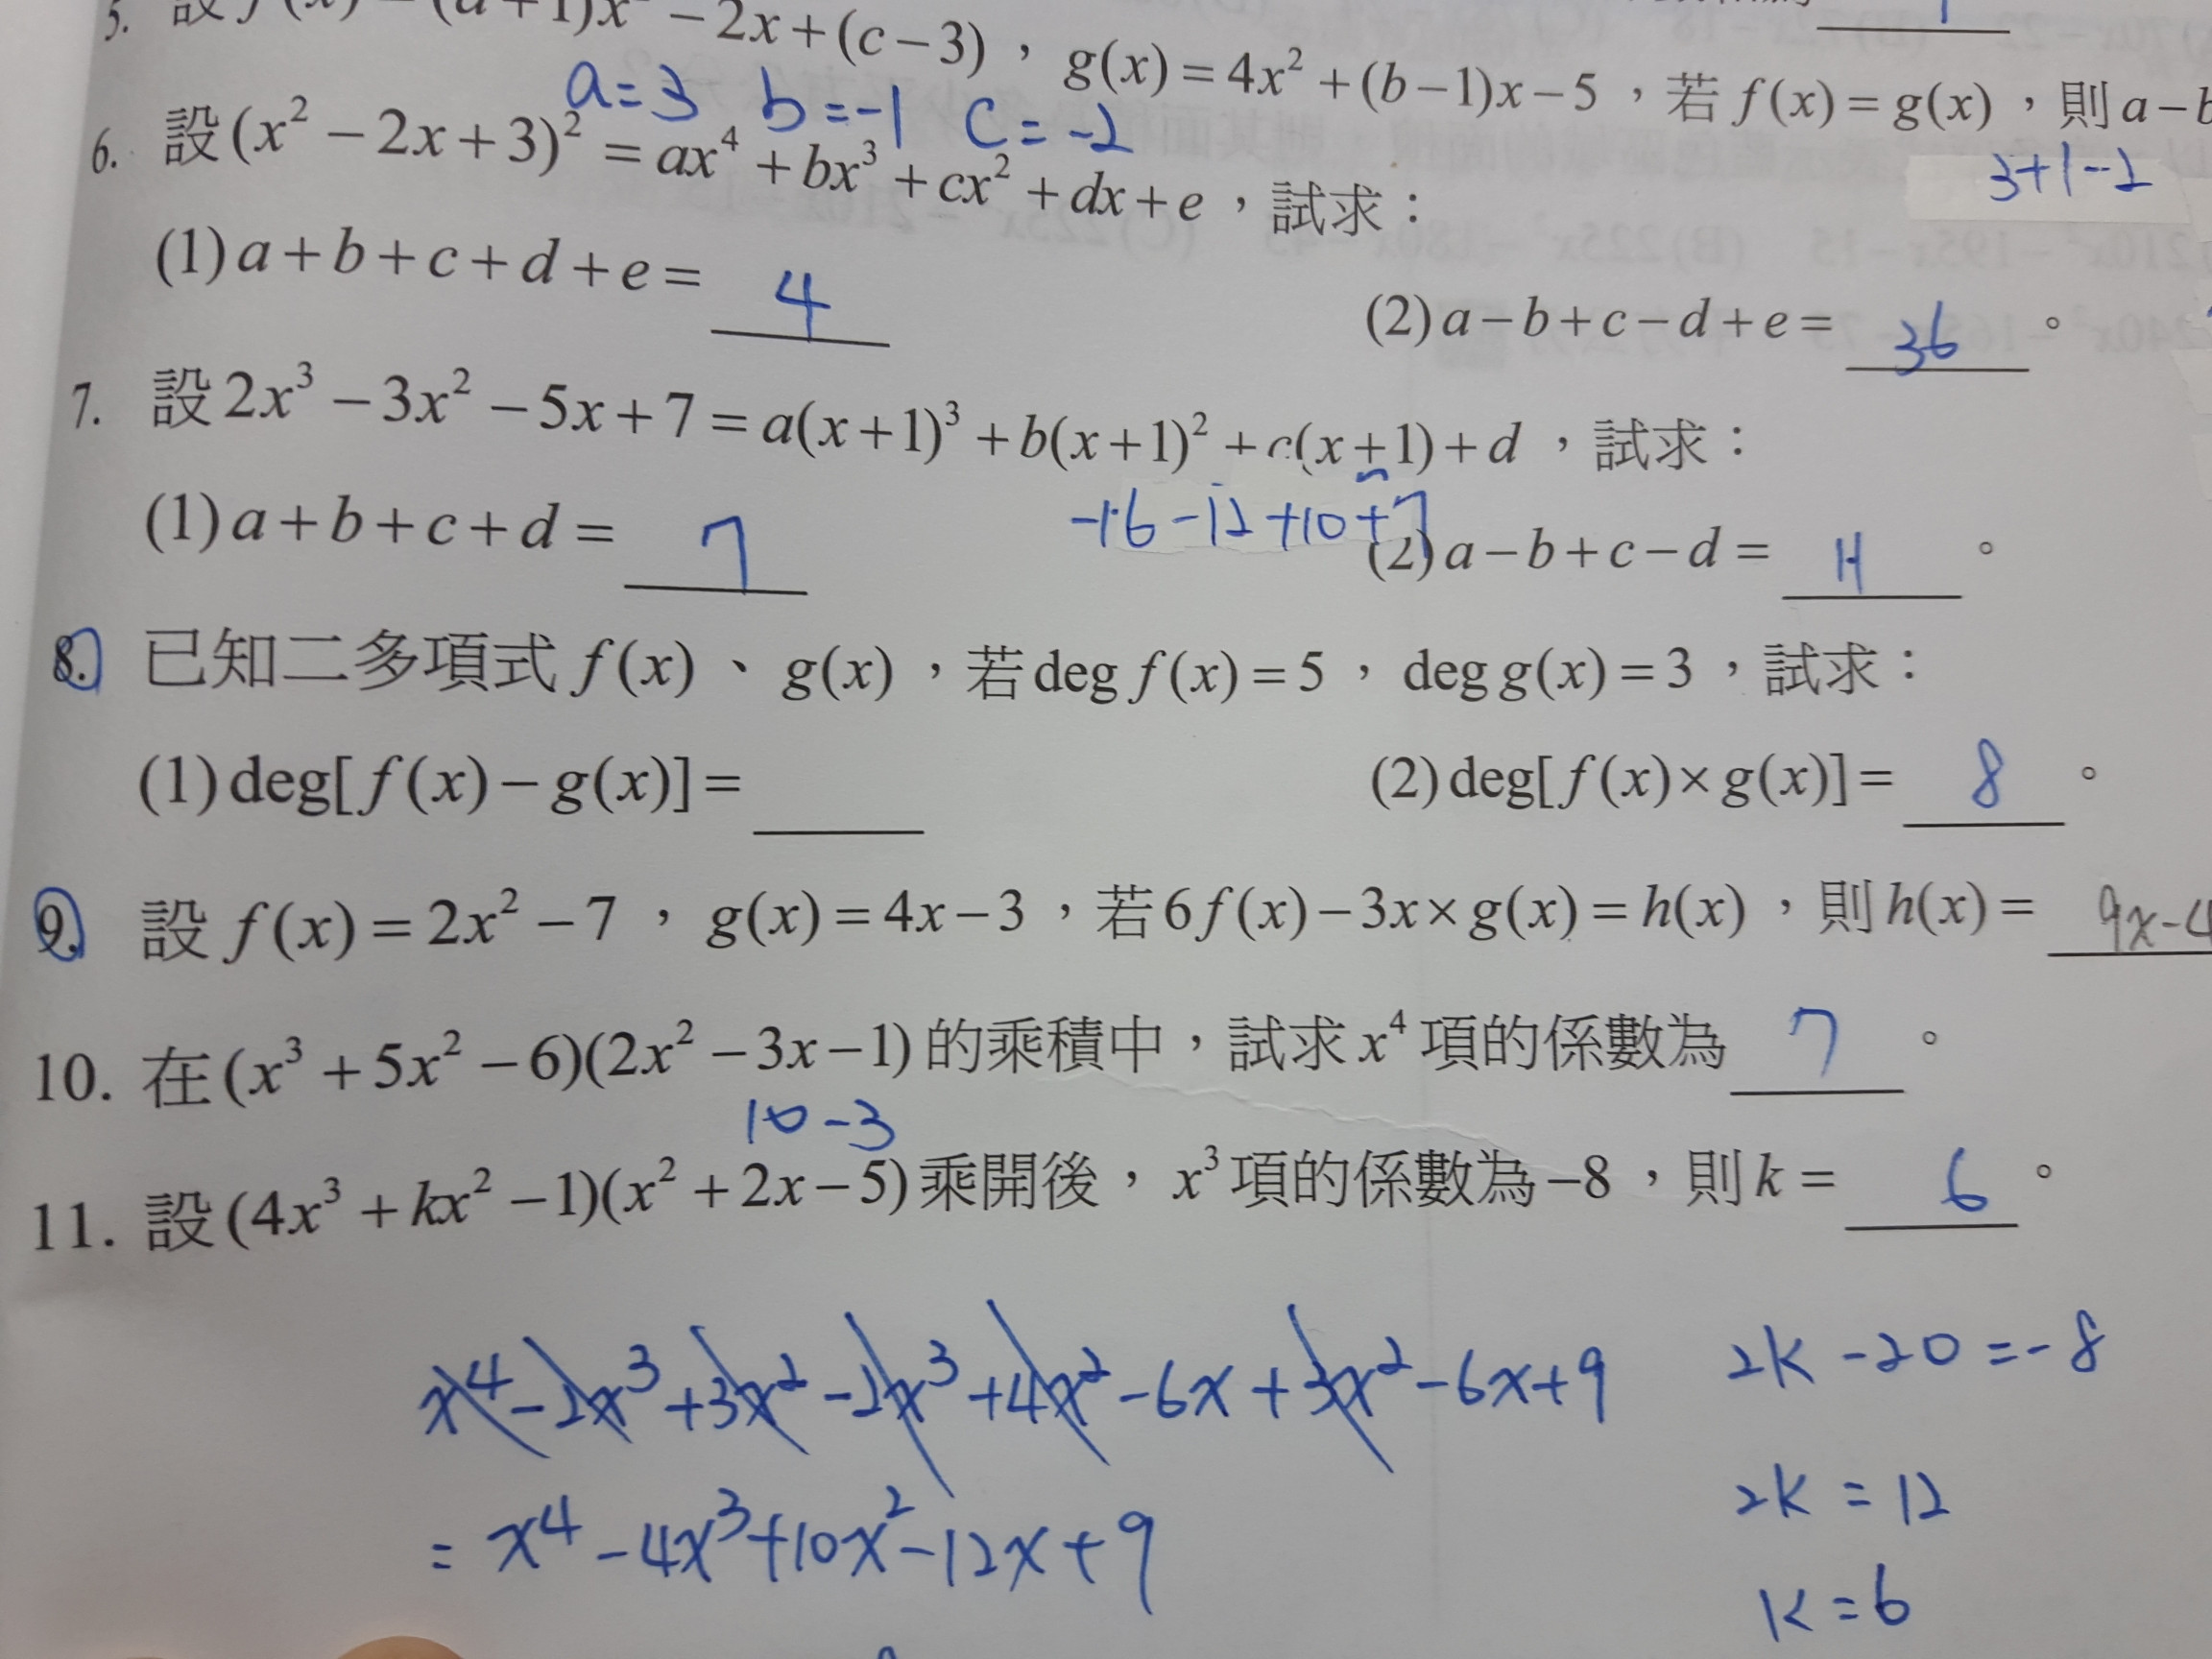 5. 設 f(x) = (a+1)x² − 2x + (c−3)，g(x) = 4x² + (b−1)x − 5，若 f(x) = g(x)，則 a − b
a=3 b=-1 c=-2
3+1-2
6. 設 (x² − 2x + 3)² = ax⁴ + bx³ + cx² + dx + e，試求：
(1) a + b + c + d + e = 4
(2) a − b + c − d + e = 36 。
7. 設 2x³ − 3x² − 5x + 7 = a(x+1)³ + b(x+1)² + c(x+1) + d ，試求：
-16-12+10+7
(1) a + b + c + d = 7
(2) a − b + c − d = 11 。
8. 已知二多項式 f(x)、g(x)，若 deg f(x) = 5，deg g(x) = 3，試求：
(1) deg[f(x) − g(x)] =
(2) deg[f(x) × g(x)] = 8 。
9. 設 f(x) = 2x² − 7，g(x) = 4x − 3，若 6f(x) − 3x × g(x) = h(x)，則 h(x) = 9x-4
10. 在 (x³ + 5x² − 6)(2x² − 3x − 1) 的乘積中，試求 x⁴ 項的係數為 7 。
10-3
11. 設 (4x³ + kx² − 1)(x² + 2x − 5) 乘開後，x³ 項的係數為 −8，則 k = 6 。
x⁴-2x³+3x²-2x³+4x²-6x+3x²-6x+9
2k-20=-8
2k=12
= x⁴-4x³+10x²-12x+9
k=6